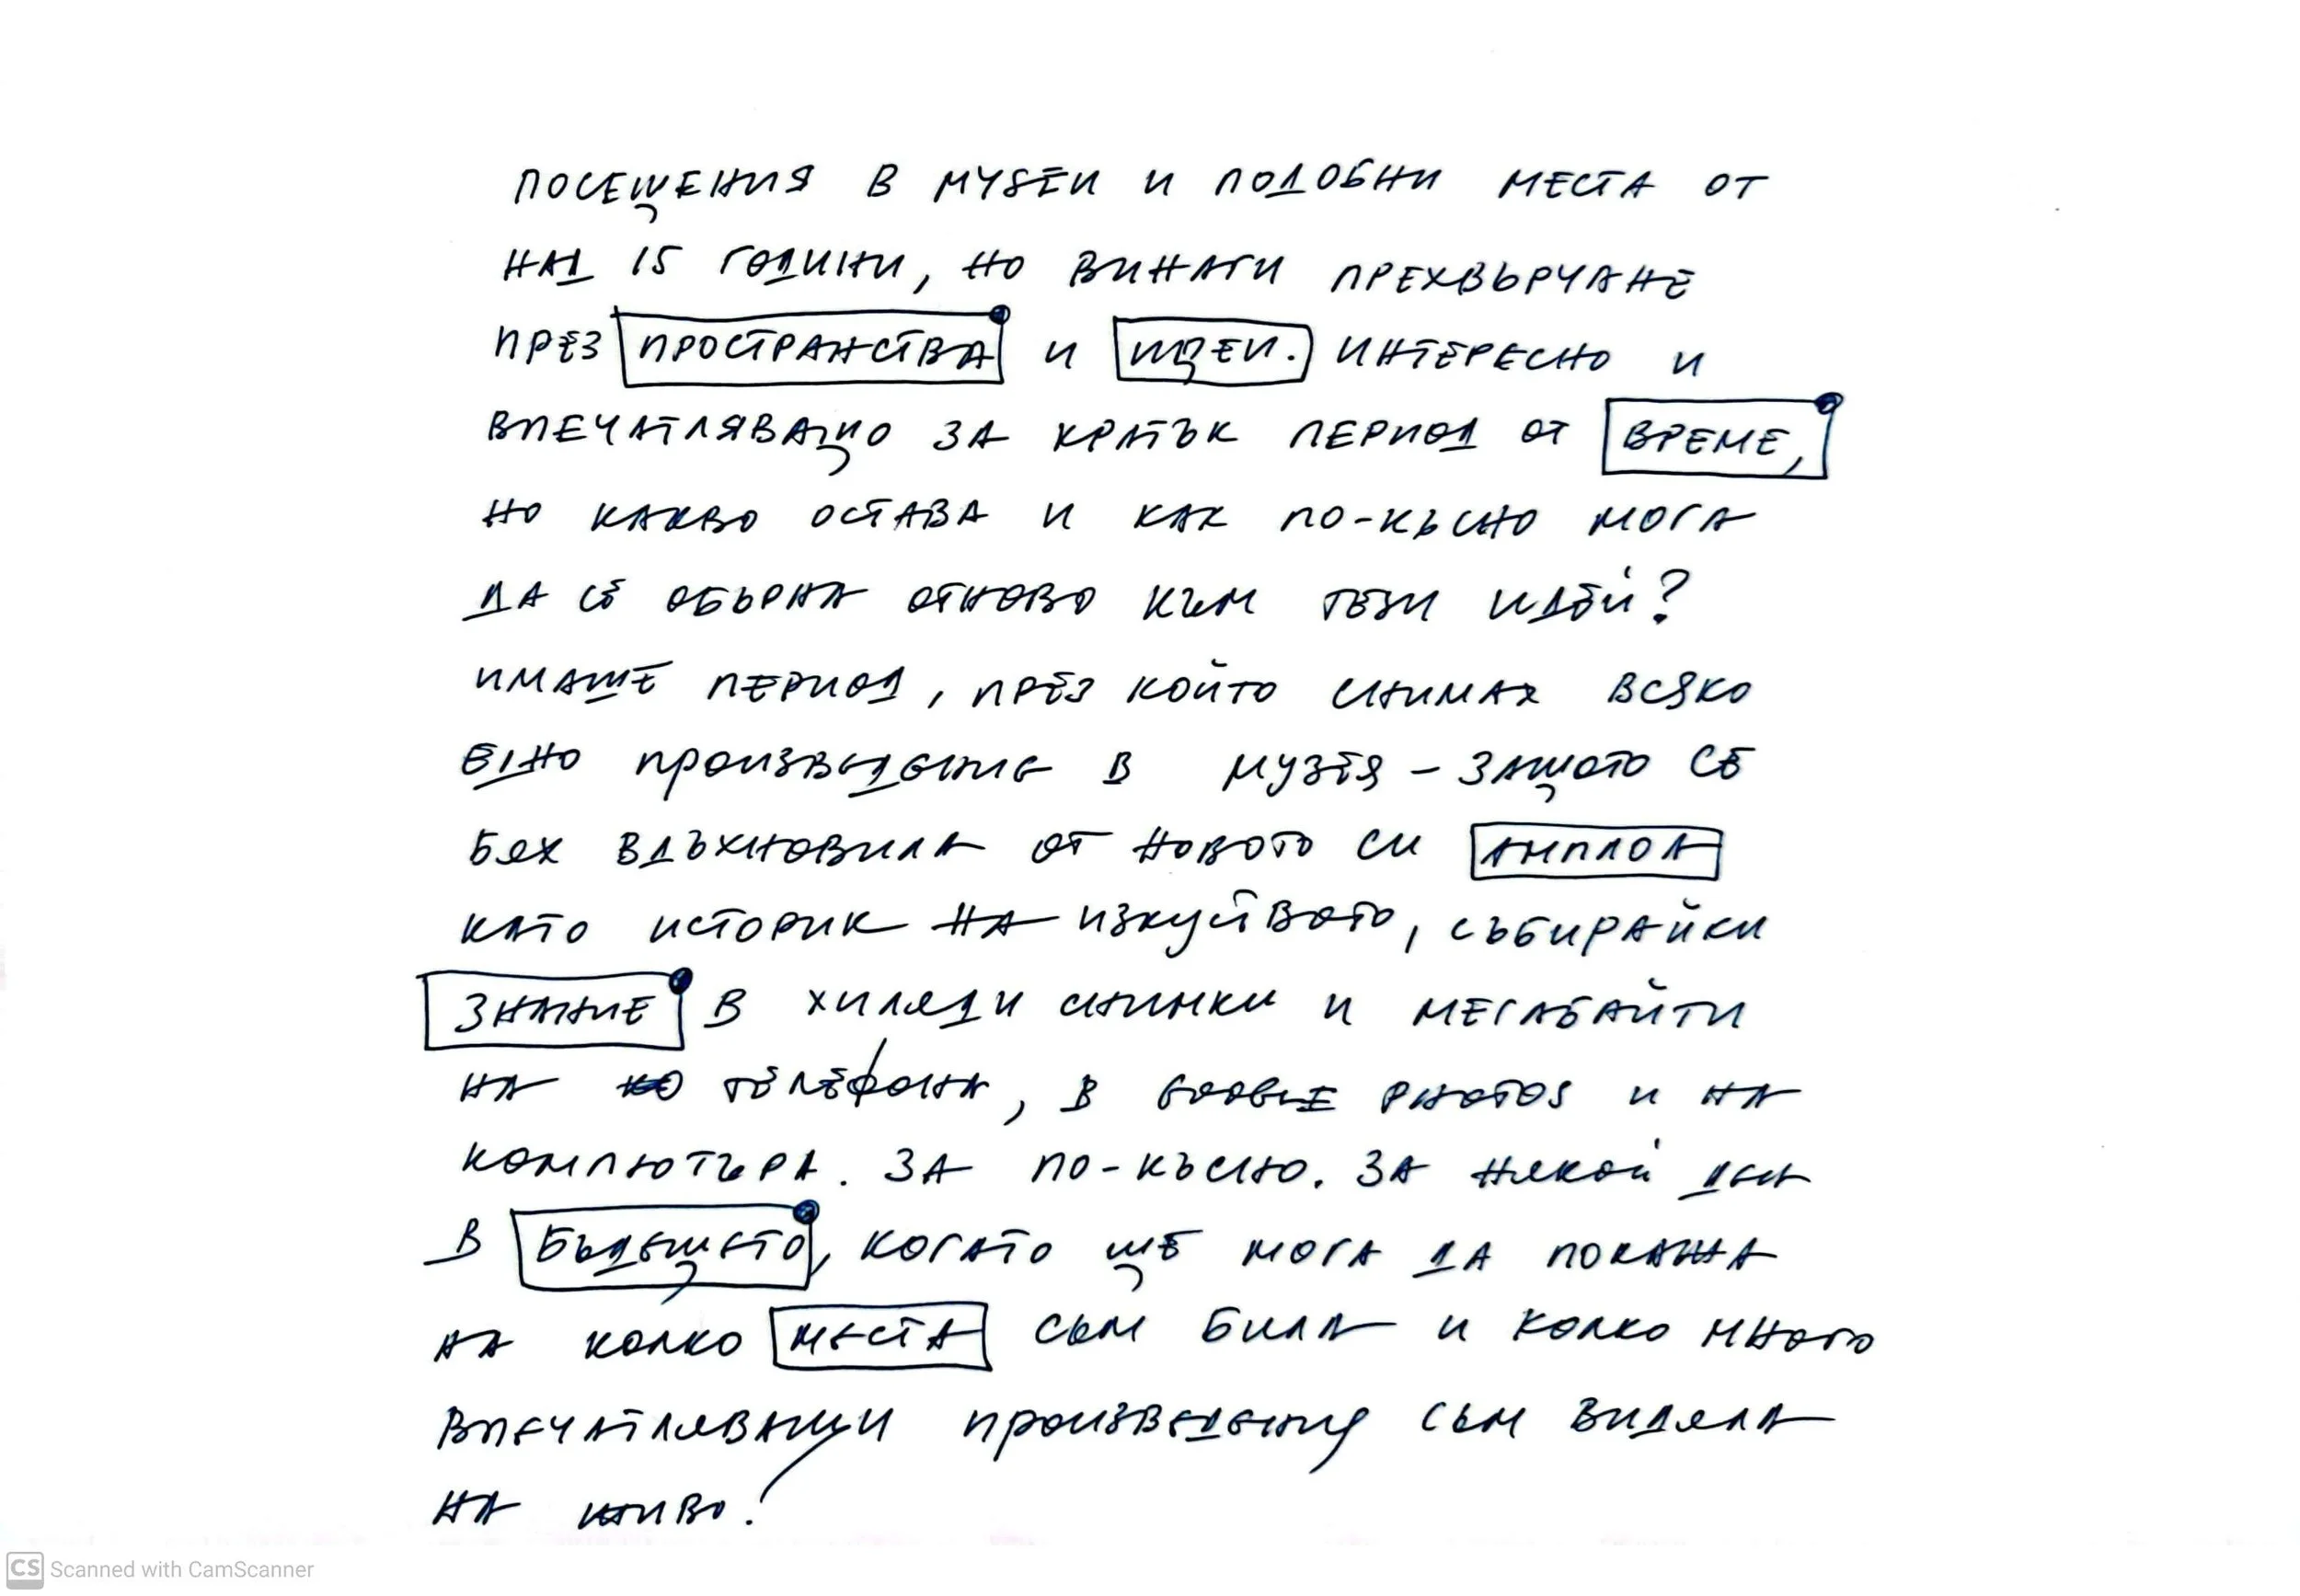 ПОСЕЩЕНИЯ В МУЗЕИ И ПОДОБНИ МЕСТА ОТ
НАД 15 ГОДИНИ, НО ВИНАГИ ПРЕХВЪРЧАНЕ
ПРЕЗ ПРОСТРАНСТВА И ИДЕИ. ИНТЕРЕСНО И
ВПЕЧАТЛЯВАЩО ЗА КРАТЪК ПЕРИОД ОТ ВРЕМЕ,
НО КАКВО ОСТАВА И КАК ПО-КЪСНО МОГА
ДА СЕ ОБЪРНА ОТНОВО КЪМ ТЕЗИ ИДЕИ?
ИМАШЕ ПЕРИОД, ПРЕЗ КОЙТО СНИМАХ ВСЯКО
ЕДНО ПРОИЗВЕДЕНИЕ В МУЗЕЯ - ЗАЩОТО СЕ
БЯХ ВДЪХНОВИЛА ОТ НОВОТО СИ АМПЛОА
КАТО ИСТОРИК НА ИЗКУСТВОТО, СЪБИРАЙКИ
ЗНАНИЕ В ХИЛЯДИ СНИМКИ И МЕГАБАЙТИ
НА ТЕЛЕФОНА, В GOOGLE PHOTOS И НА
КОМПЮТЪРА. ЗА ПО-КЪСНО. ЗА НЯКОЙ ДЕН
В БЪДЕЩЕТО, КОГАТО ЩЕ МОГА ДА ПОКАЖА
НА КОЛКО МЕСТА СЪМ БИЛА И КОЛКО МНОГО
ВПЕЧАТЛЯВАЩИ ПРОИЗВЕДЕНИЯ СЪМ ВИДЯЛА
НА ЖИВО!
CS Scanned with CamScanner